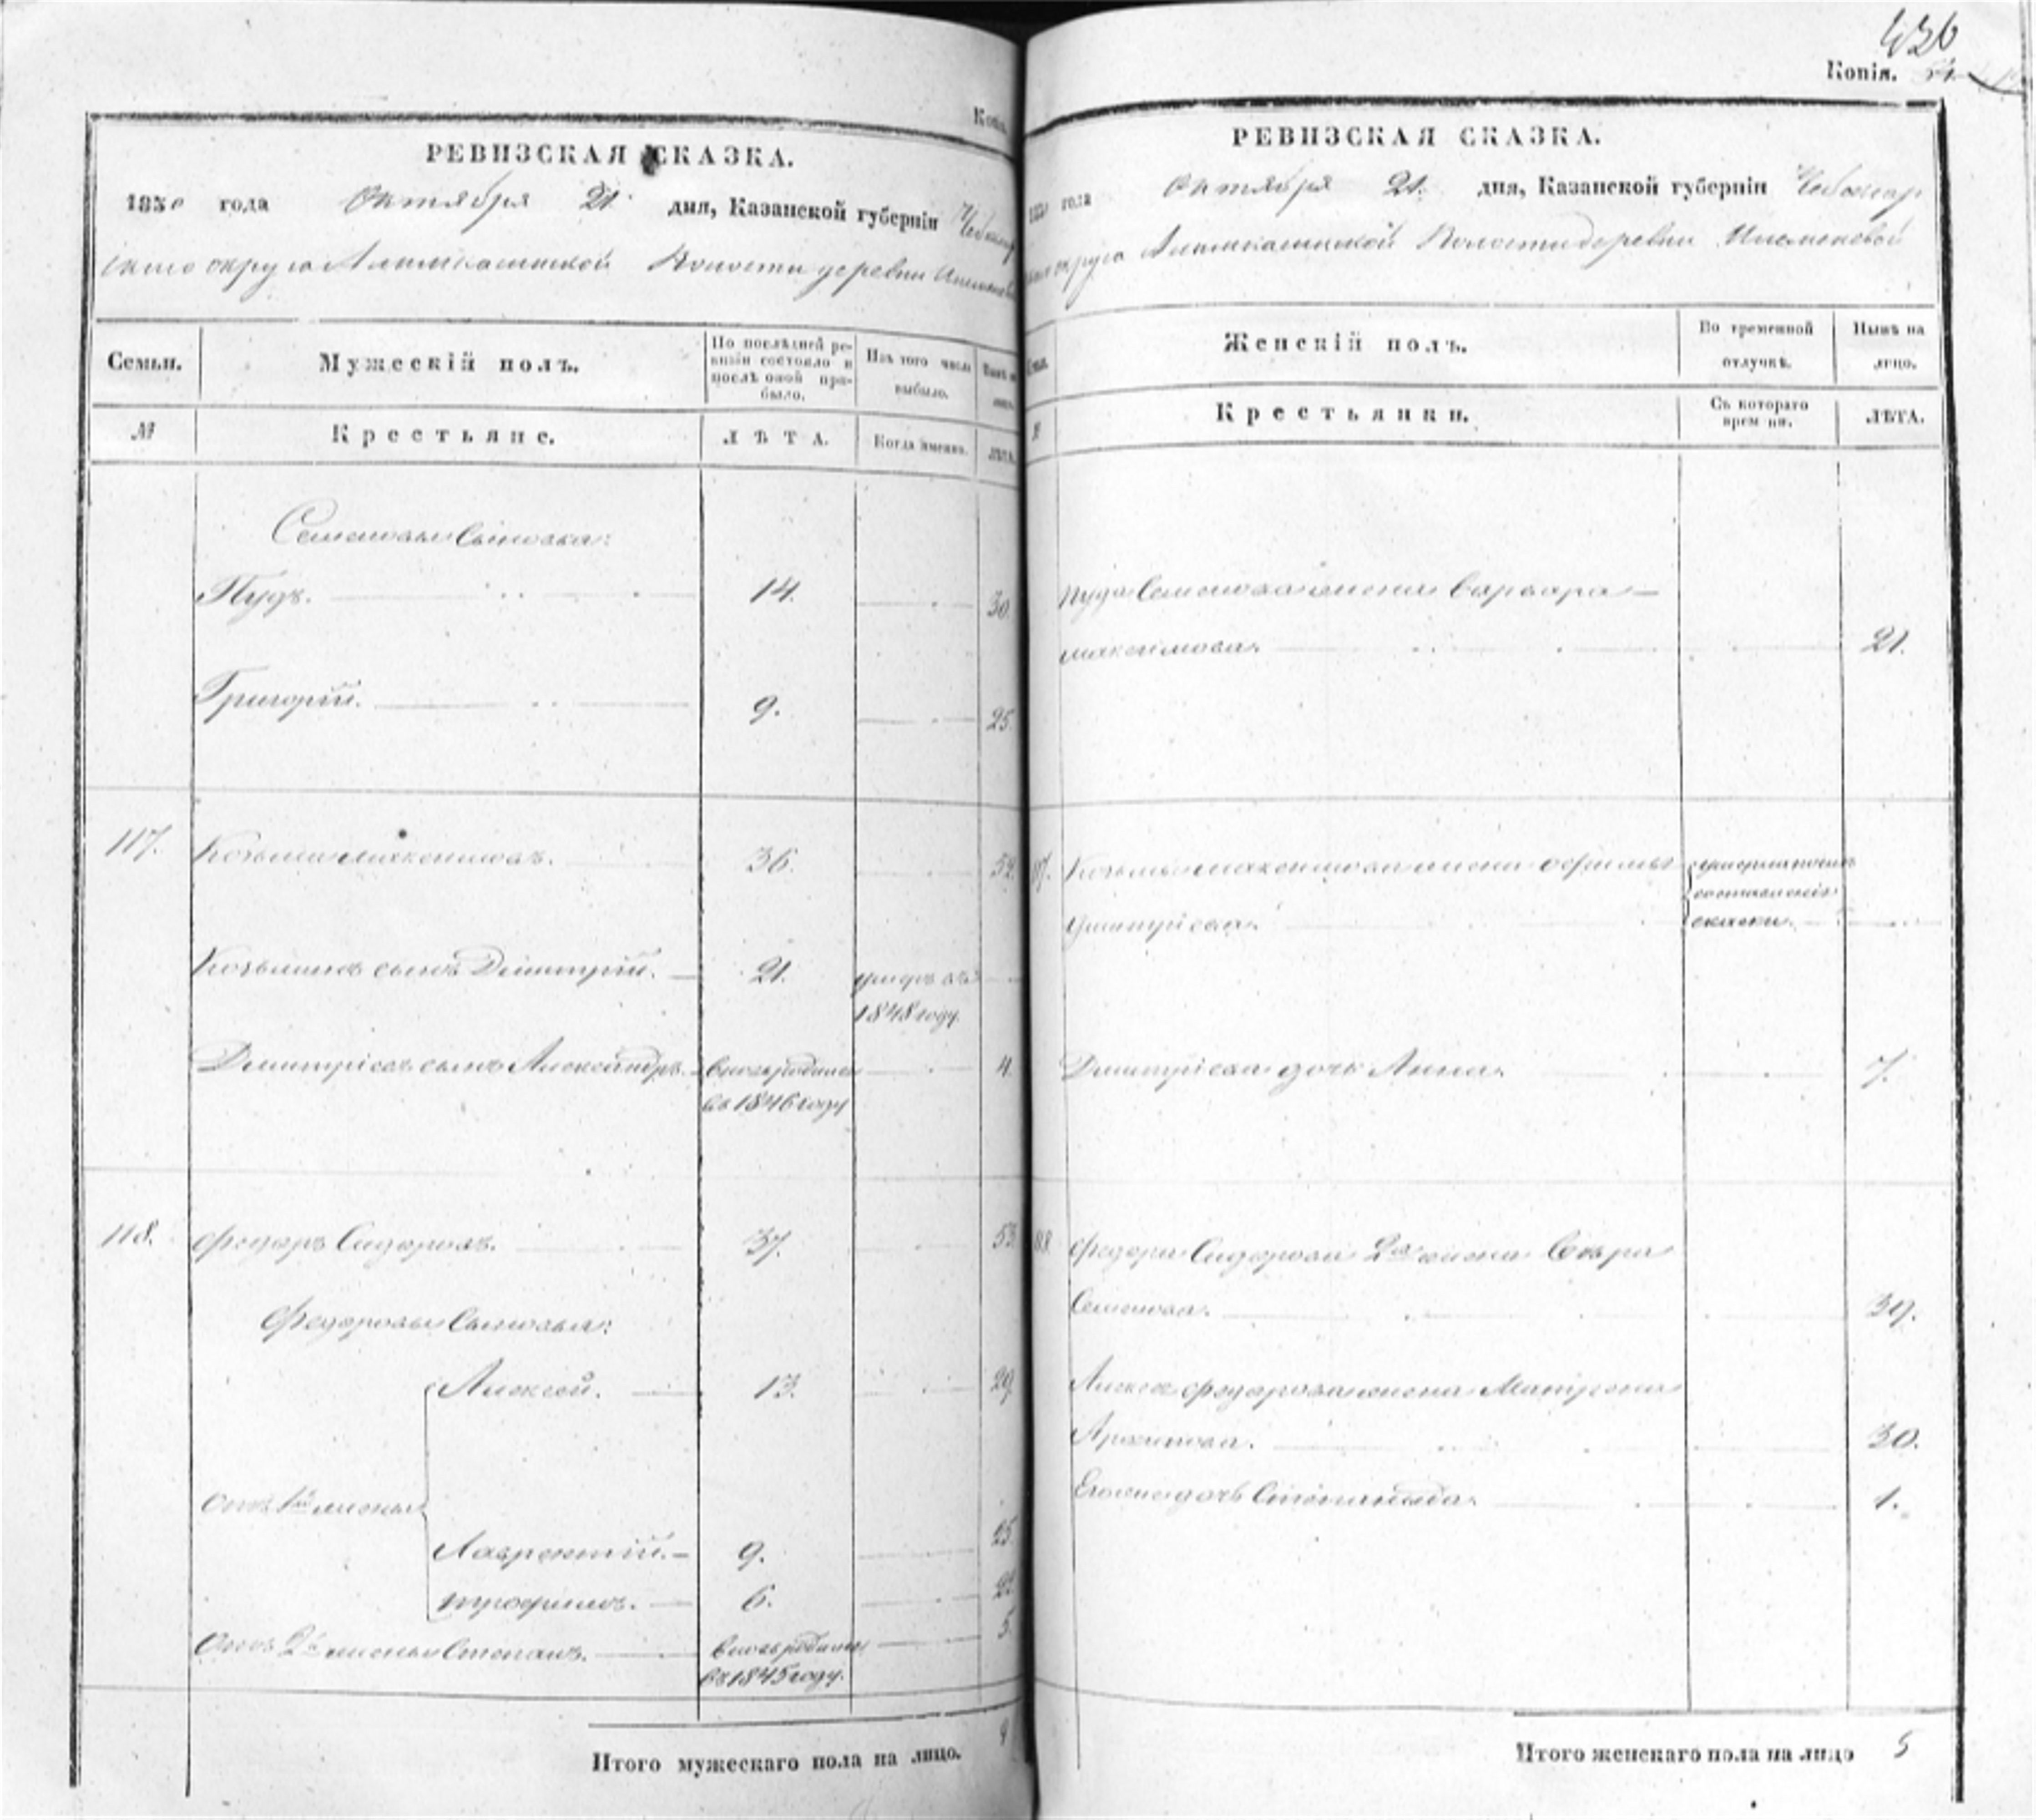 436
Копія.
РЕВИЗСКАЯ СКАЗКА.
1850 года Октября 21 дня, Казанской губерніи Чебоксар
скаго округа Волости деревни
Семьи.
Мужескій полъ.
По послѣдней ре-
визіи состояло и
послѣ оной при-
было.
Изъ того числа
выбыло.
№
Крестьяне.
ЛѢТА.
Когда именно.
ЛѢТА.
Семеновы сыновья:
Пудъ. 14. 30.
Григорій. 9. 25.
117. Козьма Максимовъ. 36.
Козьминъ сынъ Дмитрій. 21. умеръ въ
1848 году.
Дмитріевъ сынъ Александръ. вновь родился 4.
въ 1846 году
118. Федоръ Сидоровъ. 37. 53.
Федоровы сыновья:
Алексей. 13. 29.
Отъ 1й жены
Лаврентій. 9. 25.
Трофимъ. 6. 22.
Отъ 2й жены Степанъ. вновь родился 5.
въ 1845 году.
Итого мужескаго пола на лицо. 9
РЕВИЗСКАЯ СКАЗКА.
1850 года Октября 21. дня, Казанской губерніи Чебоксар
скаго округа Волости деревни
Женскій полъ.
Во временной
отлучкѣ.
Нынѣ на
лицо.
Крестьянки.
Съ котораго
времени.
ЛѢТА.
Пуда Семенова жена Варвара
Максимова. 21.
Козьмы Максимова жена
Дмитріева.
сказки.
Дмитріева дочь Анна. 7.
118. Федора Сидорова 2я жена
Семенова. 39.
Алексея Федорова жена Матрена
Архипова. 30.
Его дочь Степанида. 1.
Итого женскаго пола на лицо 5